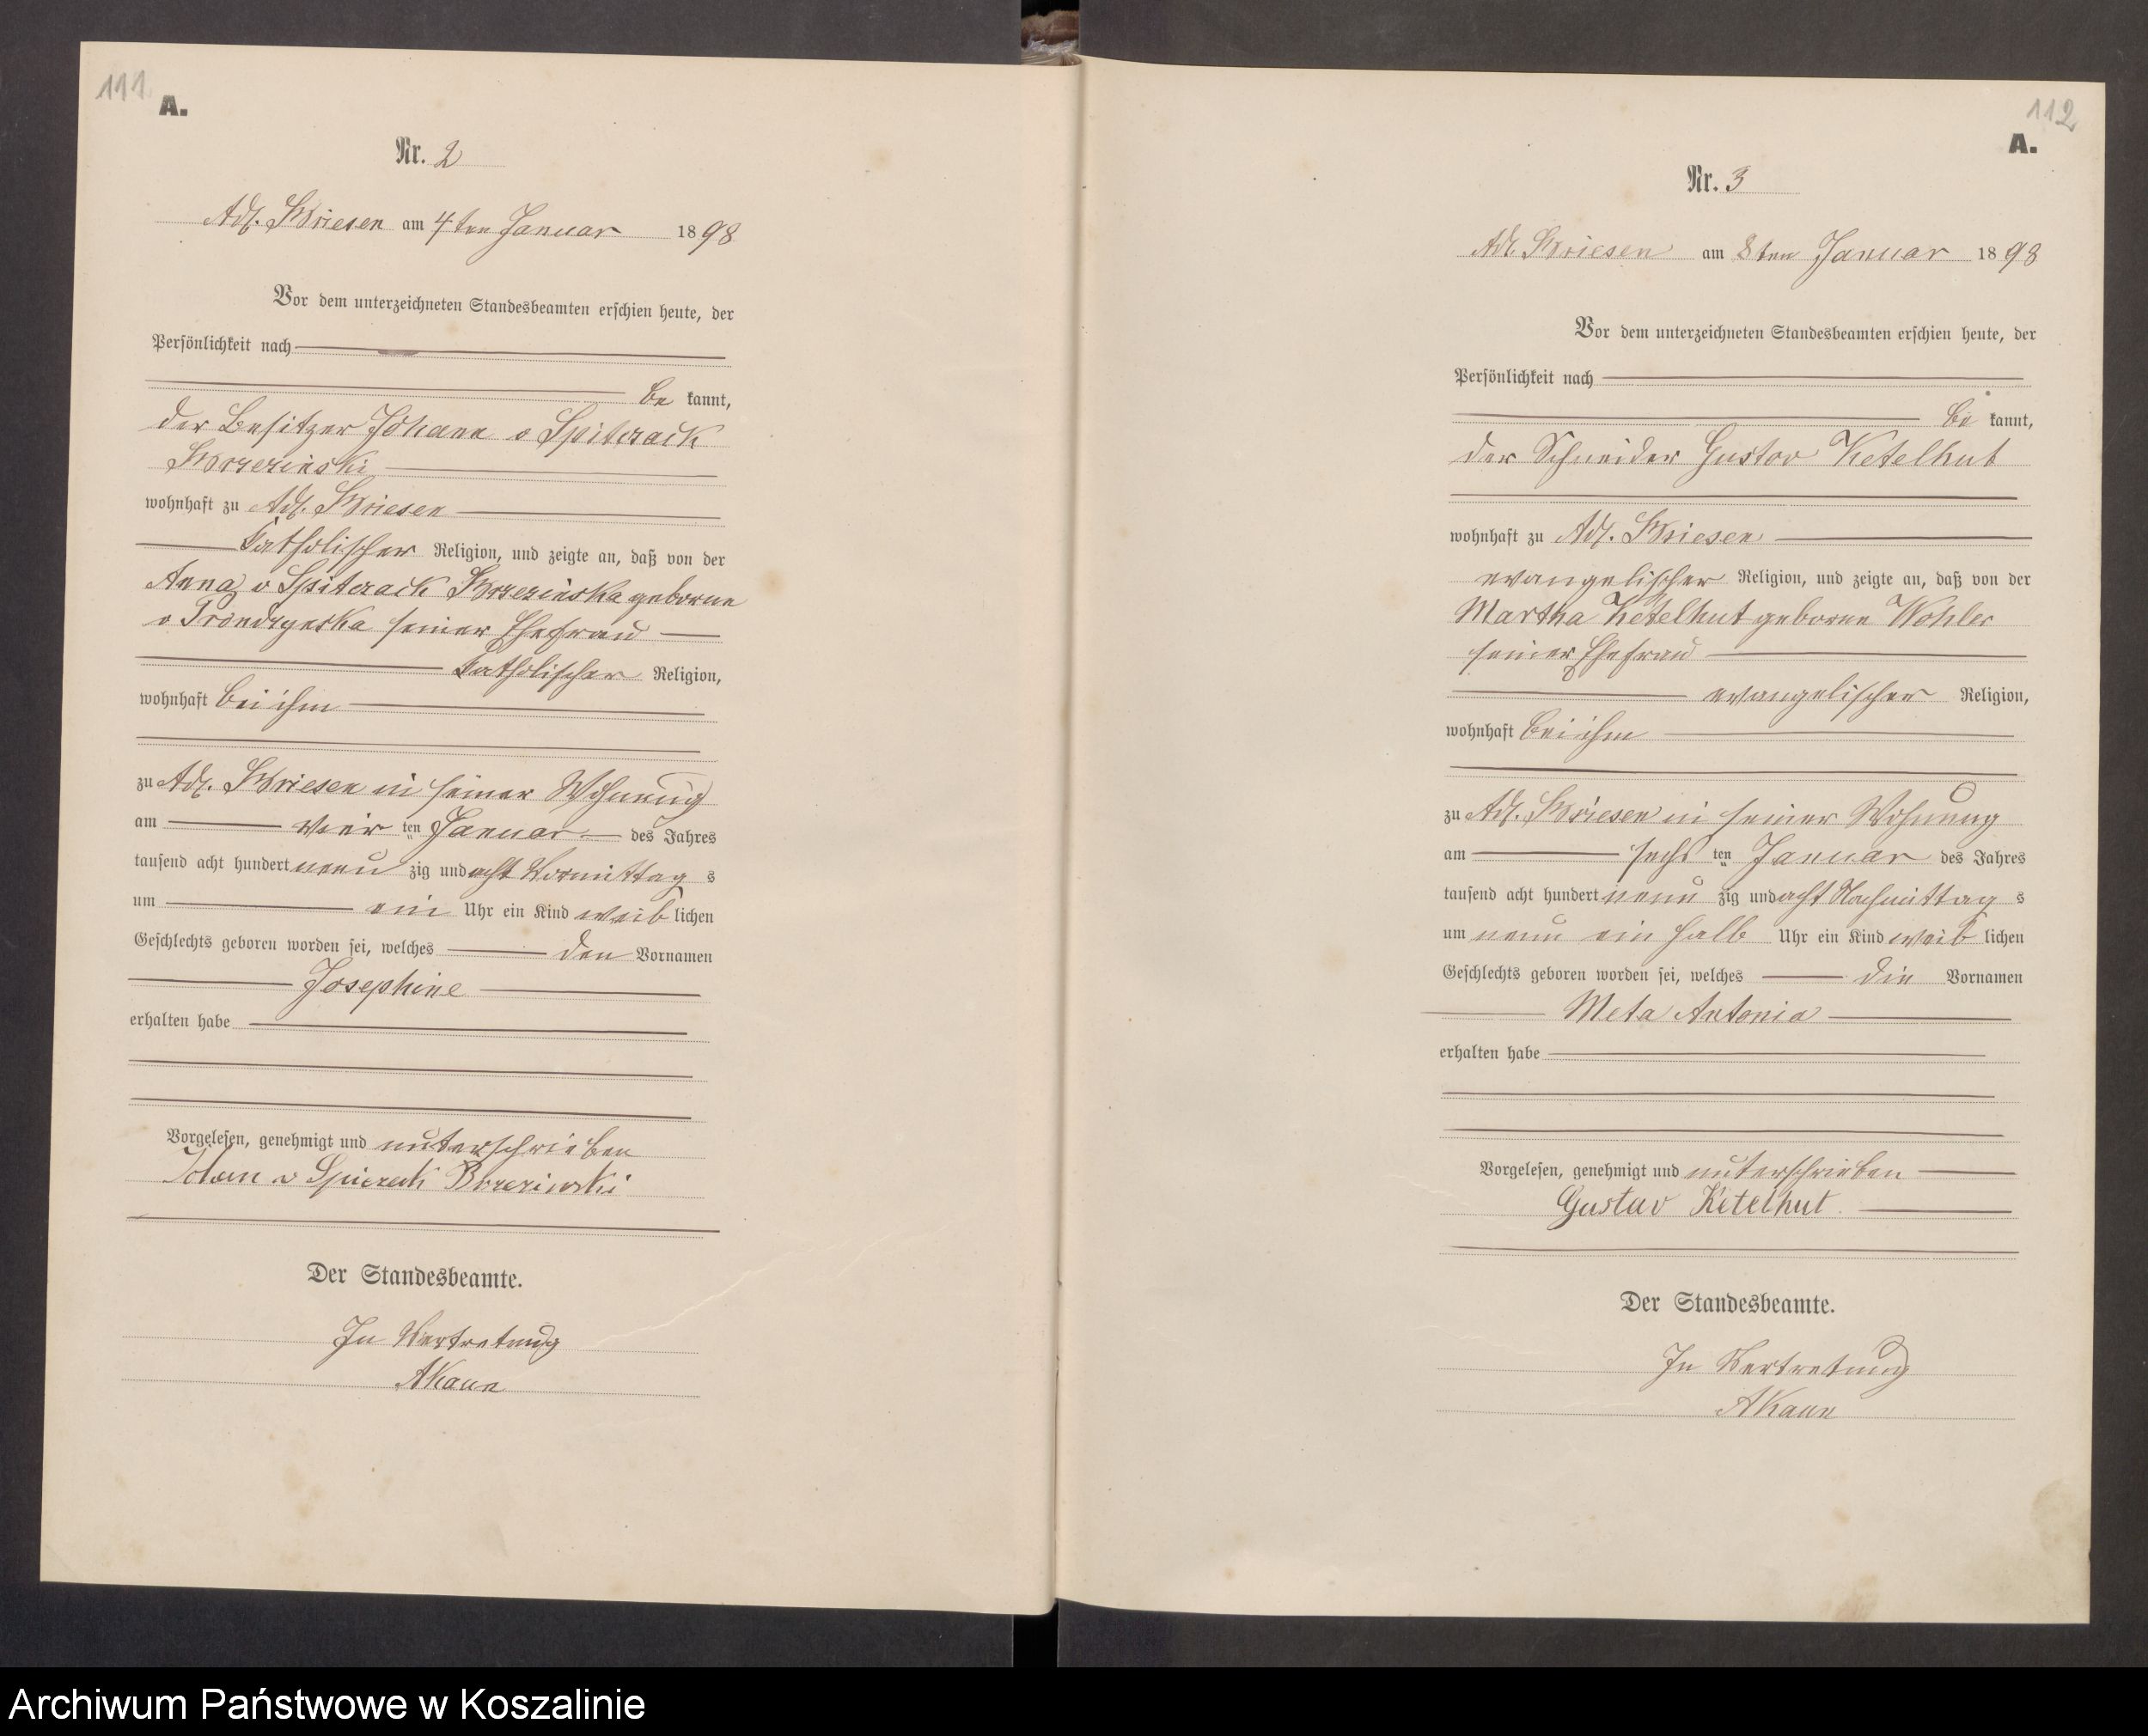 111.
A.
Nr. 2
Adl. Briesen am 4ten Januar 1898
Vor dem unterzeichneten Standesbeamten erschien heute, der
Persönlichkeit nach
be kannt,
der Besitzer Johann v Spiczack
Brzezinski
wohnhaft zu Adl. Briesen
katholischer Religion, und zeigte an, daß von der
Anna v Spiczack Brzezinska geborne
seiner Ehefrau
katholischer Religion,
wohnhaft bei ihm
zu Adl. Briesen in seiner Wohnung
am vier ten Januar des Jahres
tausend acht hundert neun zig und acht Vormittag s
um ein Uhr ein Kind weib lichen
Geschlechts geboren worden sei, welches den Vornamen
Josephine
erhalten habe
Vorgelesen, genehmigt und unterschrieben
Brzezinski
Der Standesbeamte.
In Vertretung
112
A.
Nr. 3
Adl. Briesen am 8ten Januar 1898
Vor dem unterzeichneten Standesbeamten erschien heute, der
Persönlichkeit nach
be kannt,
der Schneider Gustav Ketelhut
wohnhaft zu Adl. Briesen
evangelischer Religion, und zeigte an, daß von der
Martha Ketelhut geborne Wohler
seiner Ehefrau
evangelischer Religion,
wohnhaft bei ihm
zu Adl. Briesen in seiner Wohnung
am sechs ten Januar des Jahres
tausend acht hundert neun zig und acht Nachmittag s
um neun ein halb Uhr ein Kind weib lichen
Geschlechts geboren worden sei, welches die Vornamen
Meta Antonia
erhalten habe
Vorgelesen, genehmigt und unterschrieben
Gustav Ketelhut.
Der Standesbeamte.
In Vertretung
Archiwum Państwowe w Koszalinie